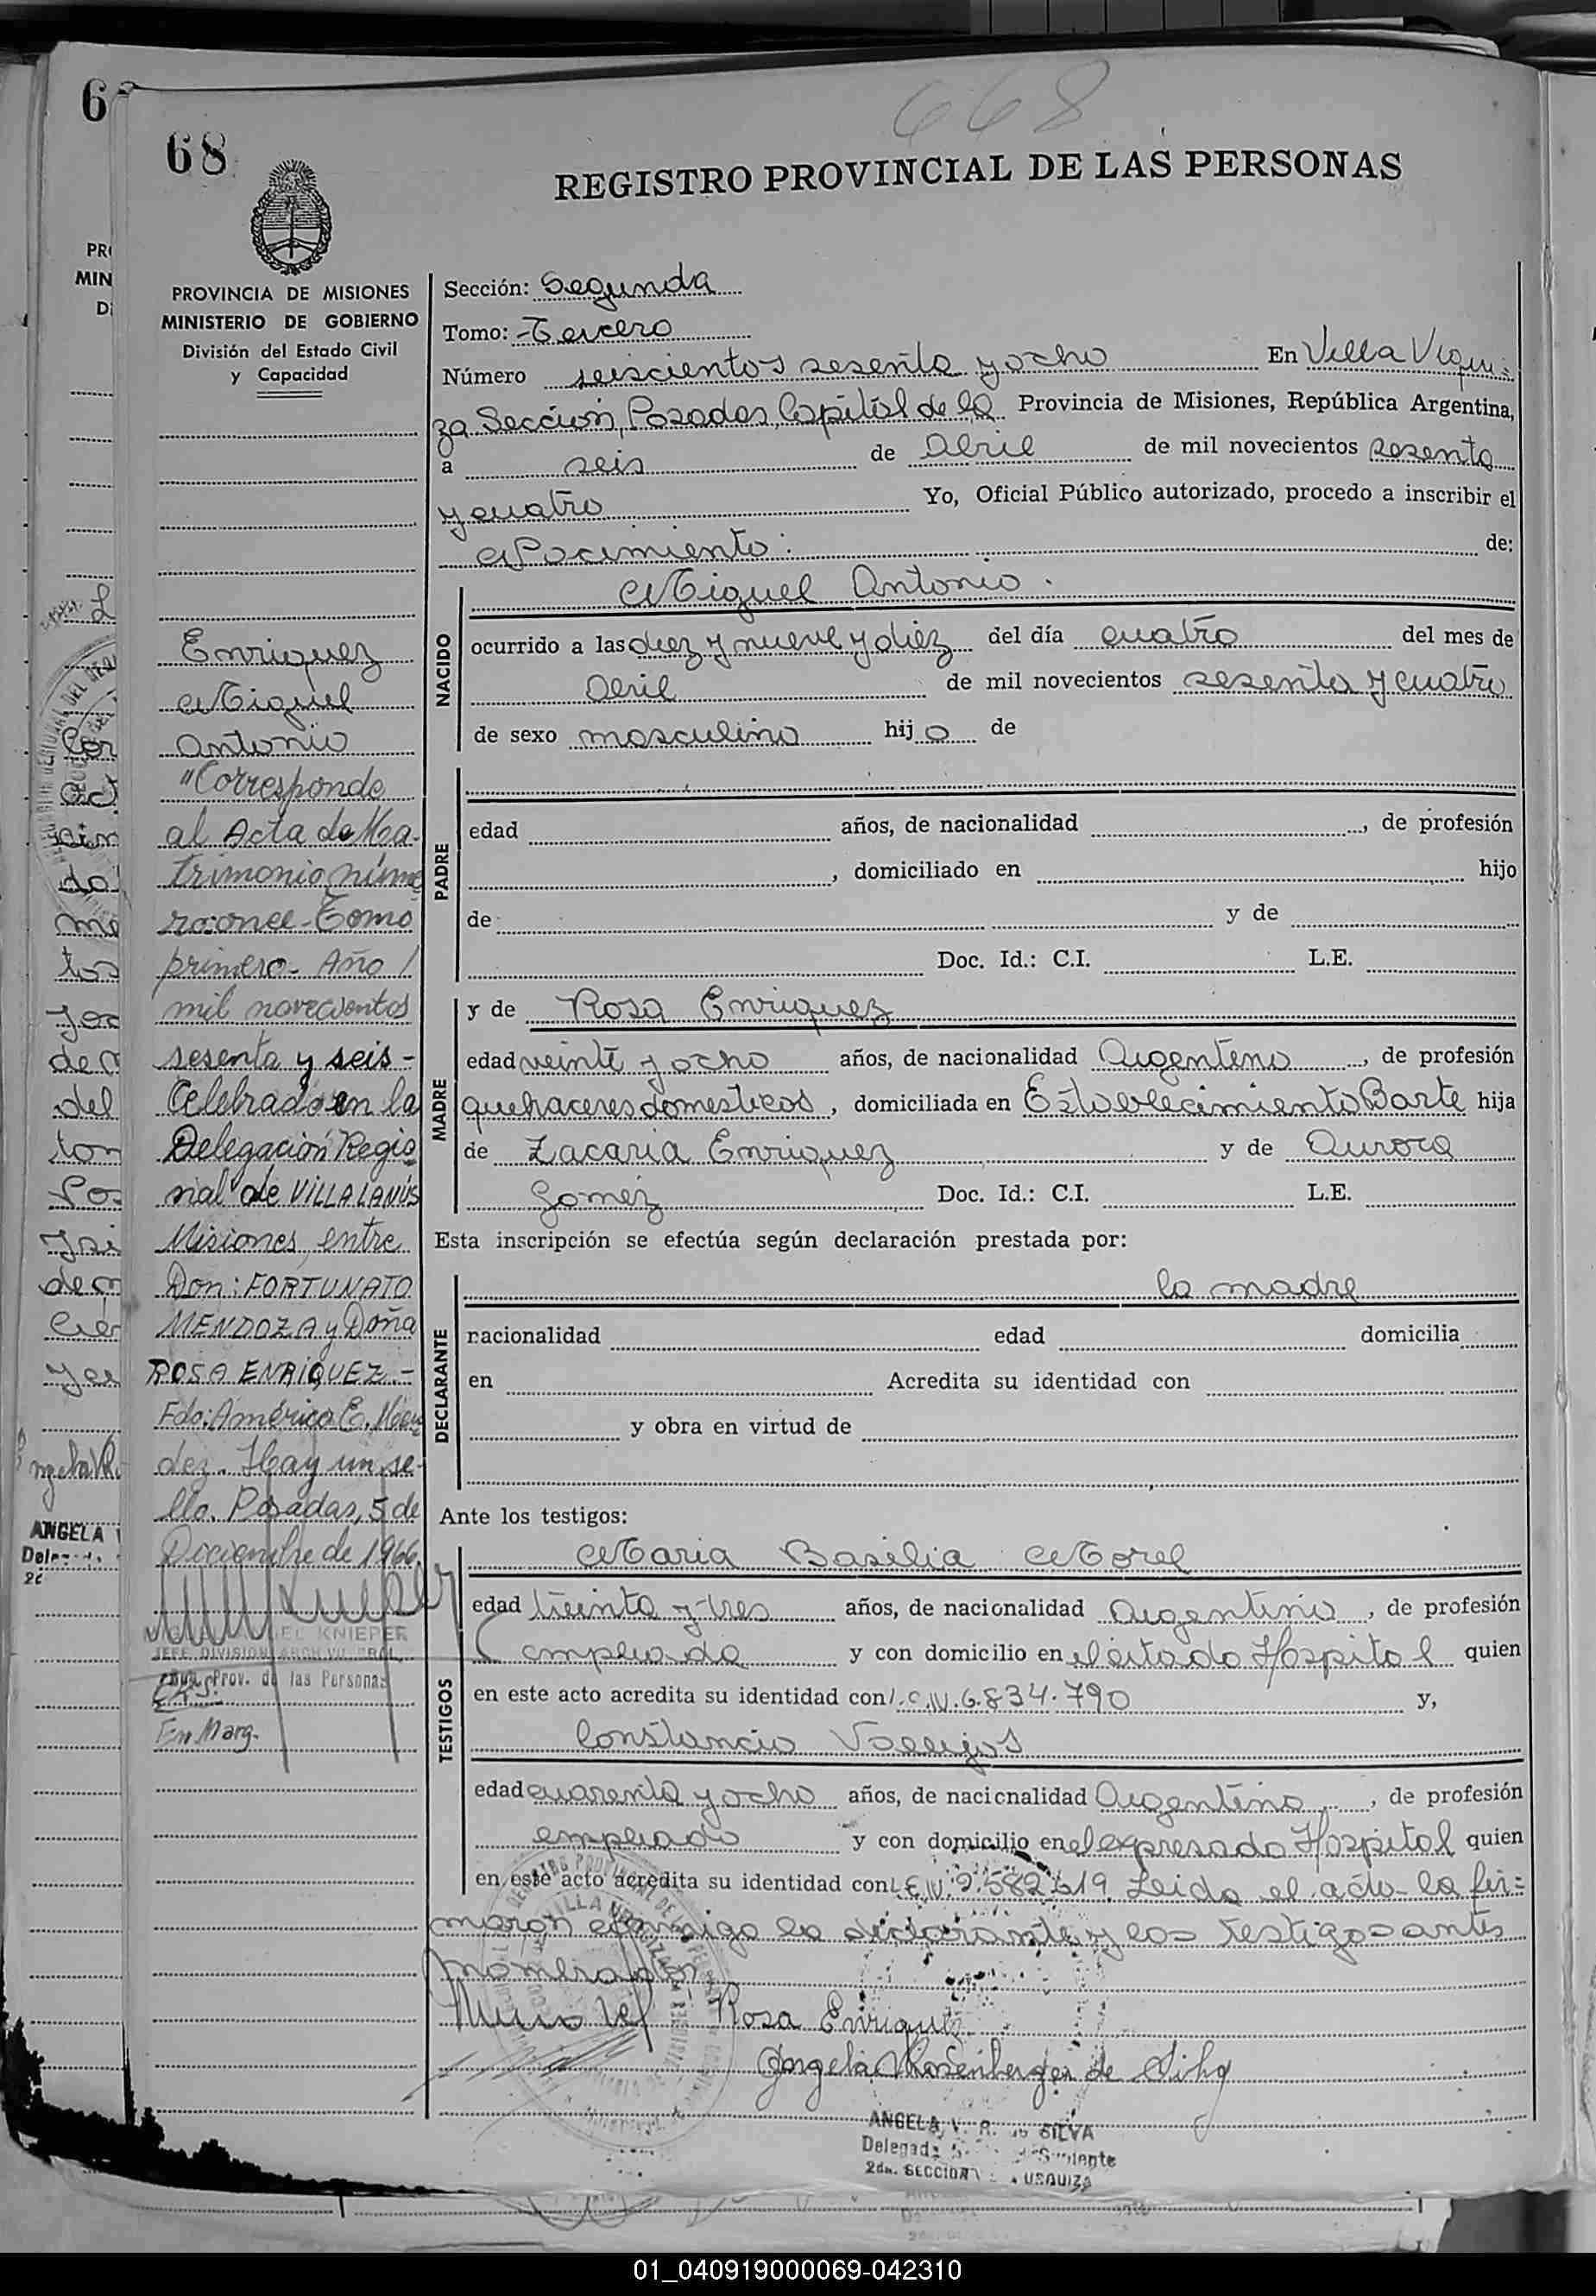 6
68
668
REGISTRO PROVINCIAL DE LAS PERSONAS
PROVINCIA DE MISIONES
MINISTERIO DE GOBIERNO
División del Estado Civil
y Capacidad
Enriquez
Miguel
Antonio
"Corresponde
al Acta de Ma-
trimonio núme
ro:once-Tomo
primero- Año /
mil novecientos
sesenta y seis-
Celebrado en la
Delegación Regio
nal de VILLA LANÚS
Misiones, entre
Don: FORTUNATO
MENDOZA y Doña
ROSA ENRIQUEZ.-
Fdo: América E. Men
dez. Hay un se-
llo. Posadas, 5 de
Diciembre de 1966.
EL KNIEPER
JEFE DIVISION ARCHIVO GRAL
Prov. de las Personas
En Marg.
Sección: Segunda
Tomo: -Tercero
Número seiscientos sesenta y ocho En Villa Urqui-
za Sección, Posadas, Capital de la Provincia de Misiones, República Argentina,
a seis de Abril de mil novecientos sesenta
y cuatro Yo, Oficial Público autorizado, procedo a inscribir el
Nacimiento: de:
NACIDO
Miguel Antonio.
ocurrido a las diez y nueve y diez del día cuatro del mes de
Abril de mil novecientos sesenta y cuatro
de sexo masculino hijo de
PADRE
edad años, de nacionalidad , de profesión
, domiciliado en hijo
de y de
Doc. Id.: C.I. L.E.
MADRE
y de Rosa Enriquez
edad veinte y ocho años, de nacionalidad Argentina , de profesión
quehaceres domesticos , domiciliada en Establecimiento Barte hija
de Zacaria Enriquez y de Aurora
Gomez Doc. Id.: C.I. L.E.
Esta inscripción se efectúa según declaración prestada por:
DECLARANTE
la madre
nacionalidad edad domicilia
en Acredita su identidad con
y obra en virtud de
Ante los testigos:
TESTIGOS
Maria Basilia Morel
edad treinta y tres años, de nacionalidad Argentina , de profesión
empleada y con domicilio en el citado Hospital quien
en este acto acredita su identidad con L.C.N. 6.834.790 y,
Constancio Vallejos
edad cuarenta y ocho años, de nacionalidad Argentino , de profesión
empleado y con domicilio en el expresado Hospital quien
en este acto acredita su identidad con L.E.N. 2.582.619 Leida el acta la fir=
maron conmigo la declarante y los testigos antes
nombrados
Rosa Enriquez
Angela Rosenberger de Silva
ANGELA V. R. de SILVA
Delegada Suplente
2da. SECCION URQUIZA
01_040919000069-042310